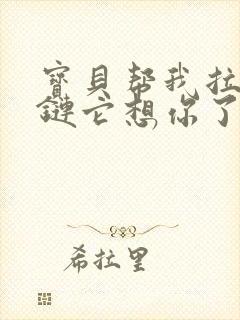 寶貝幫我拉
鏈它想你了
希拉里